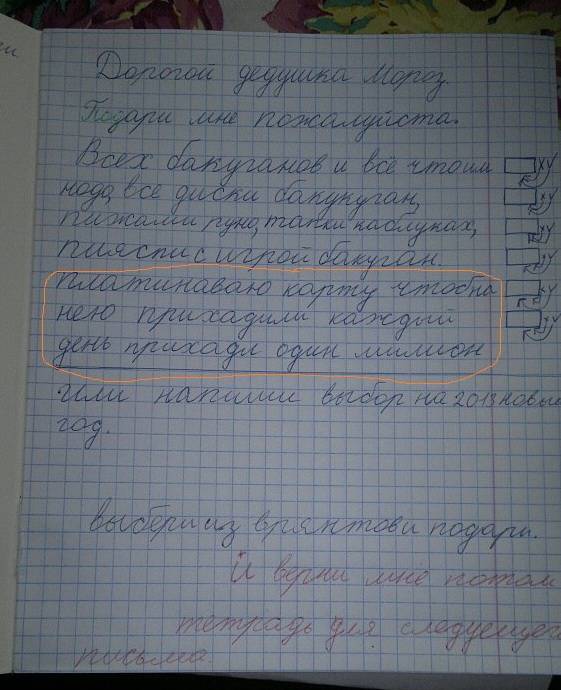 Дорогой дедушка Мороз.
Подари мне пожалуйста.
Всех бакуганов и всё что им
нода, все диски бакукуган,
пижами руно, тапки каблуках,
пияспи с игрой бакуган.
платинаваю карту чтоб на
нею прихадили каждый
день прихадл один милион
или напиши выбор на 2013 новый
год.
выбери из врянтов и подари.
И верни мне потом
тетрадь для следуещего
письма.